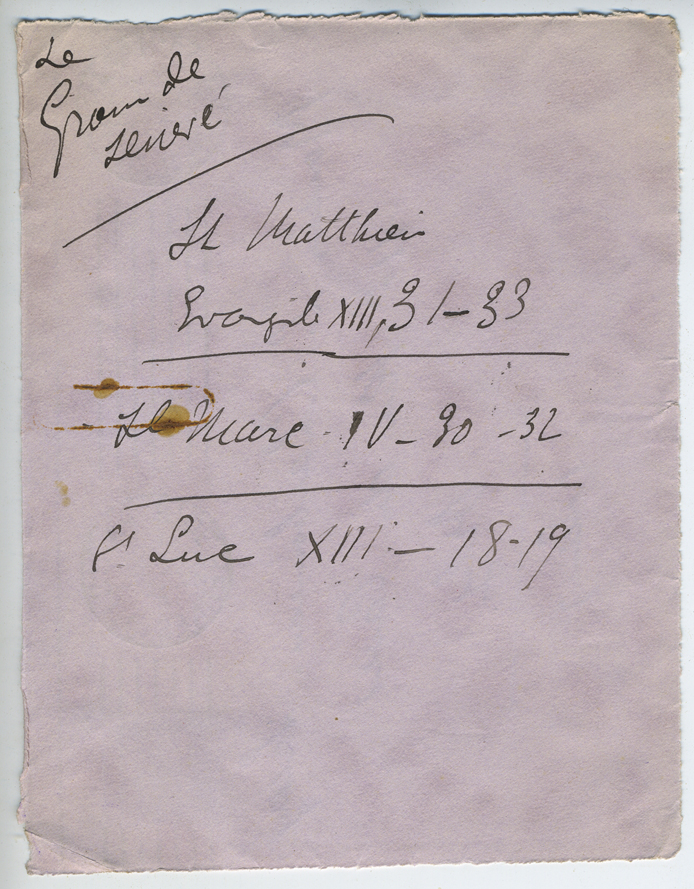 Le
Grain de
sénevé
St Matthieu
Evangile XIII, 31-33
St Marc - IV - 30 - 32
St Luc XIII - 18-19